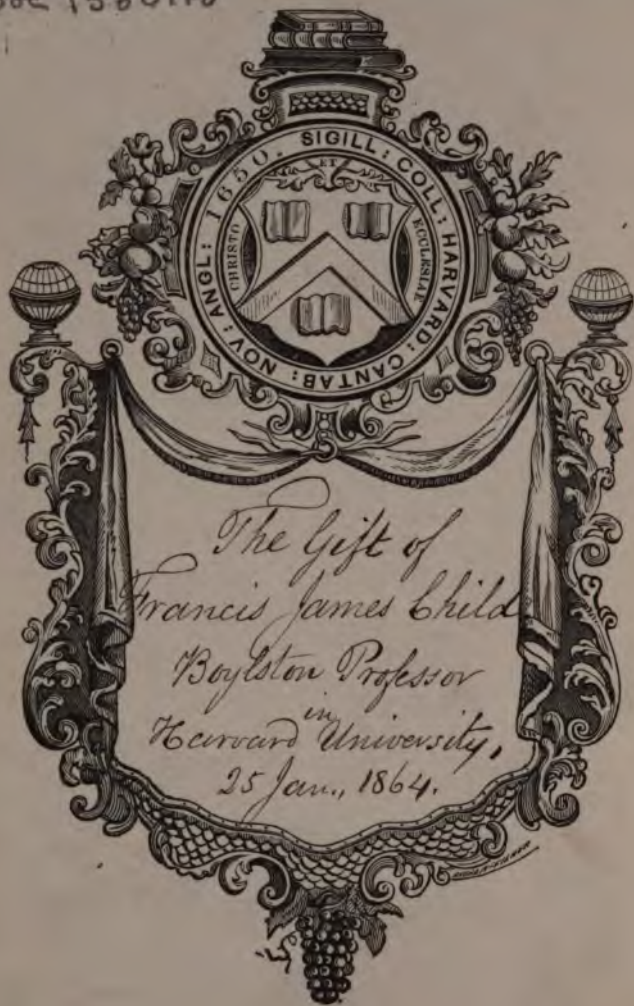 SIGILL: COLL: HARVARD: CANTAB: NOV: ANGL: 1650.
ET
CHRISTO
ECCLESIAE
The Gift of
Francis James Child
Boylston Professor
in
Harvard University,
25 Jan., 1864.